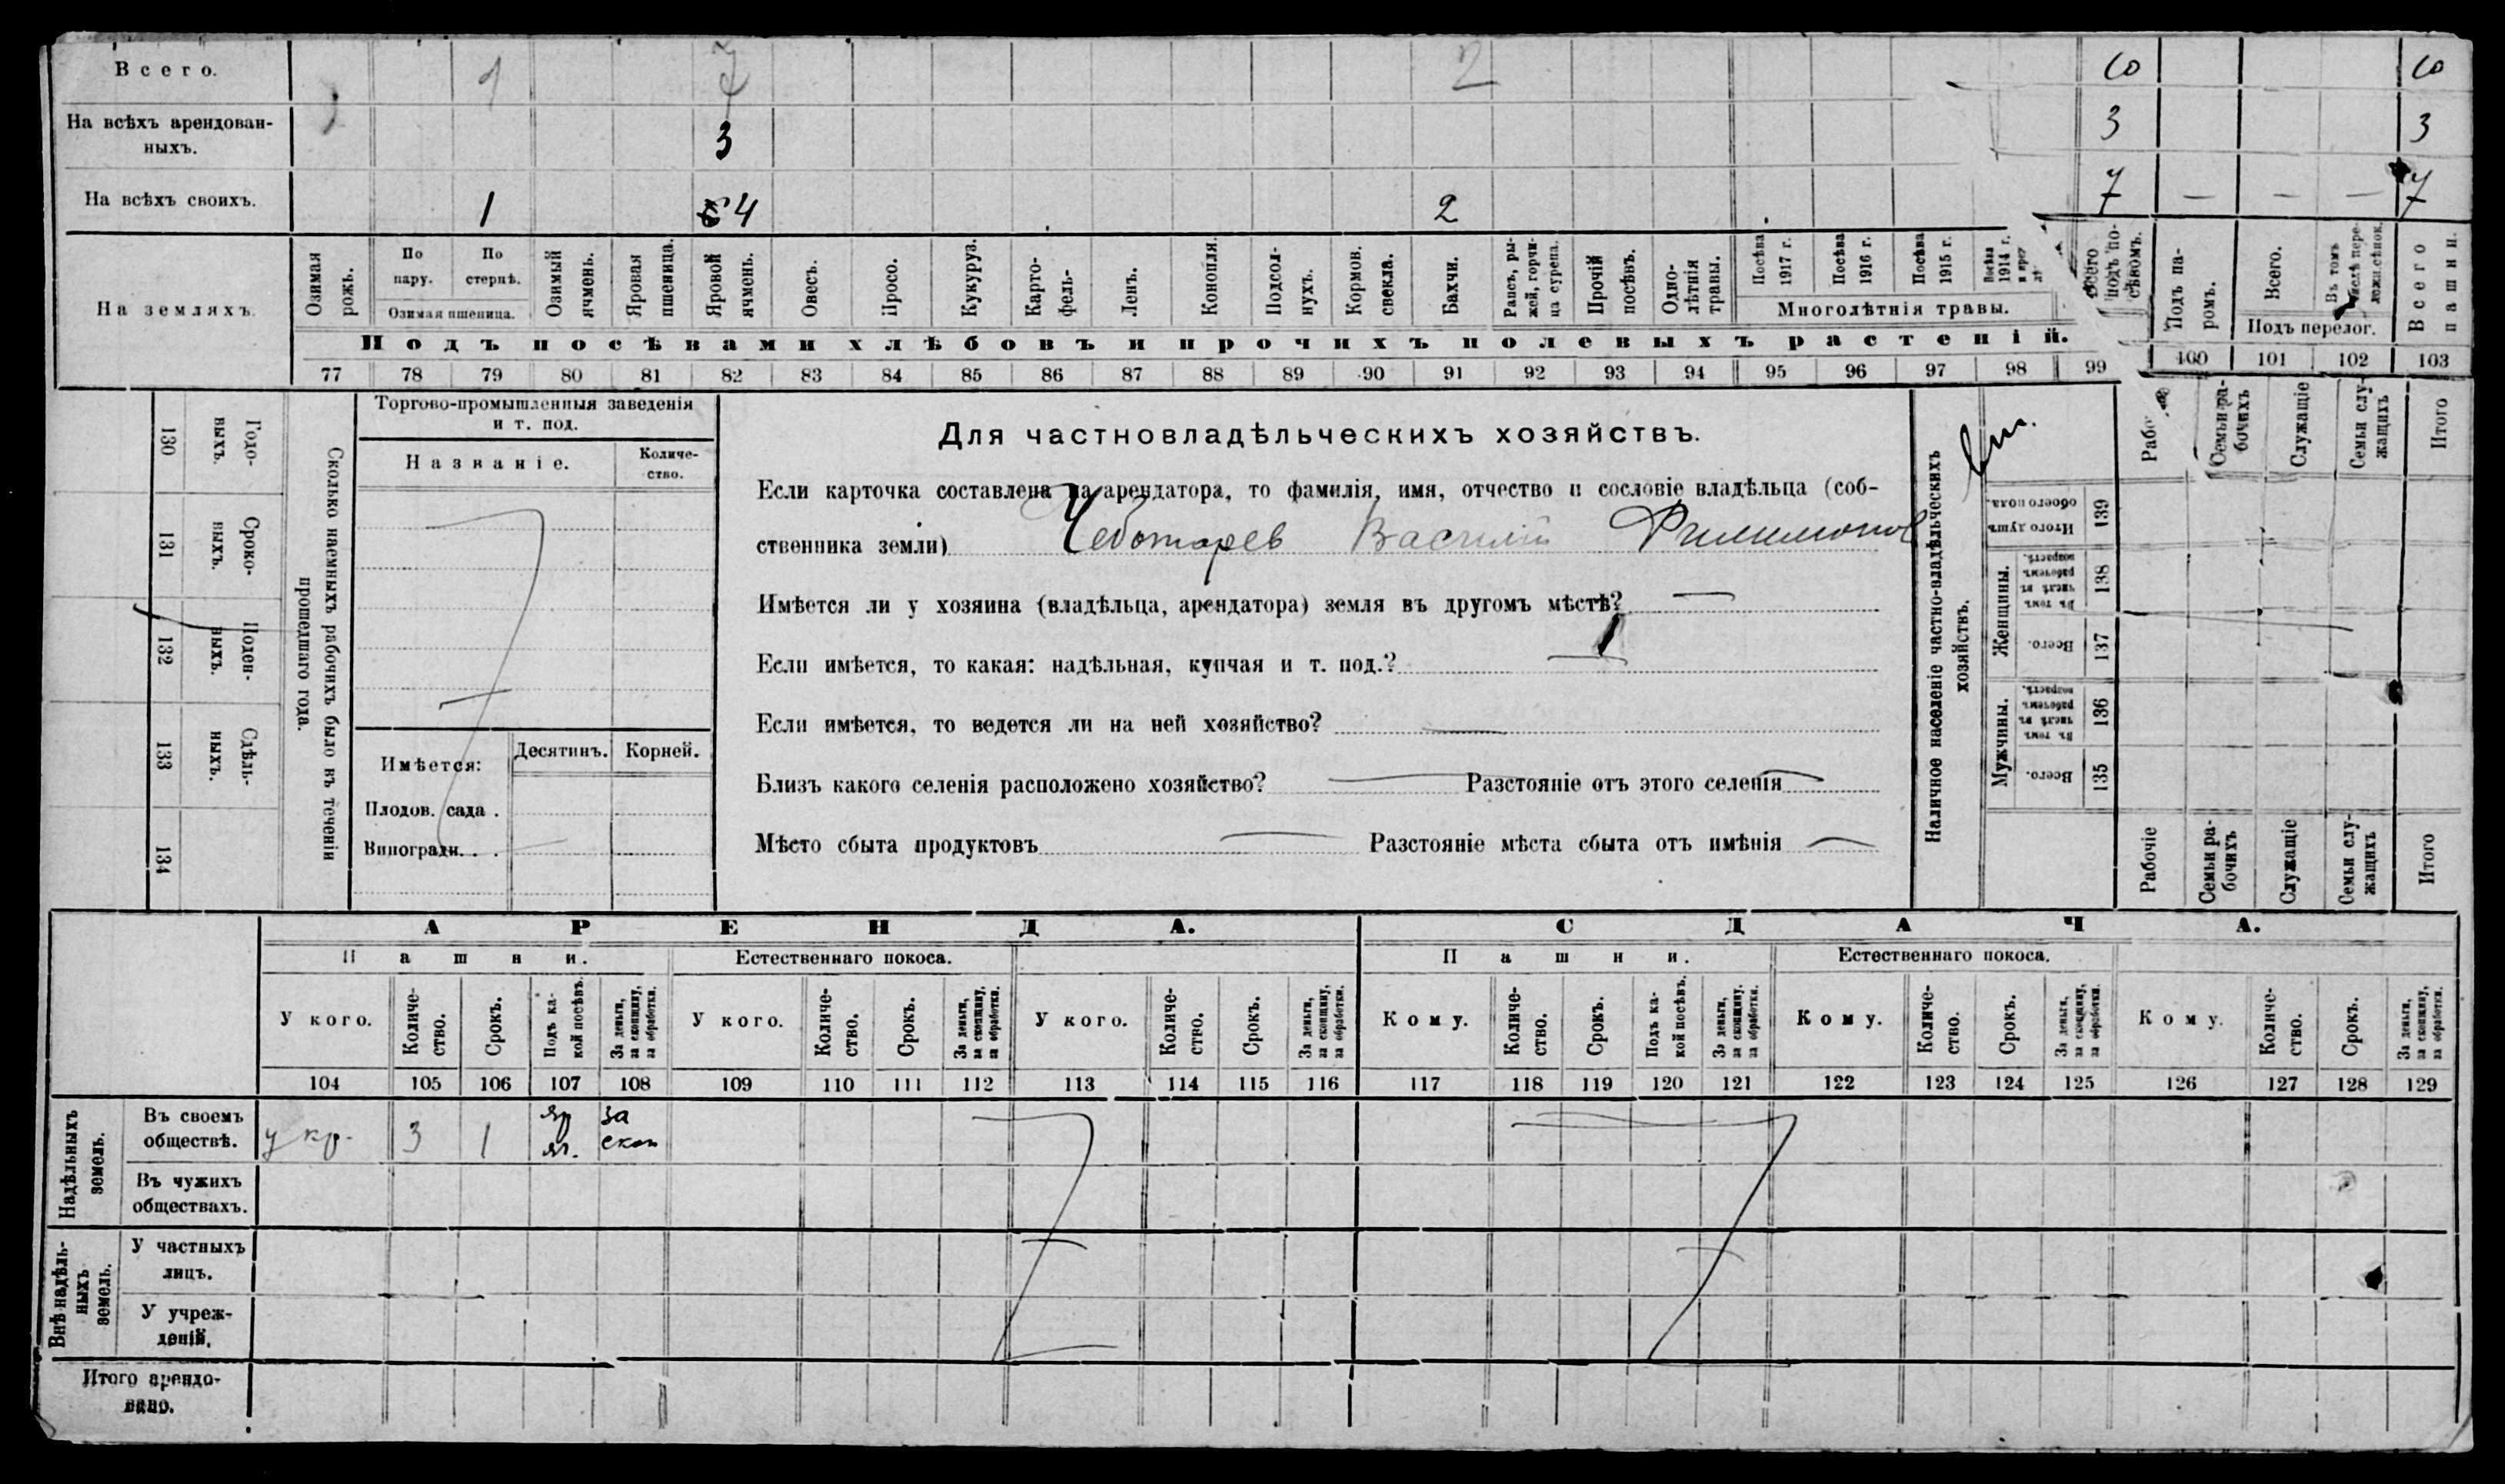 Всего. 1 7 2 10 10
На всѣхъ арендован-
ныхъ. 3 3 3
На всѣхъ своихъ. 1 4 2 7 — — — 7
На земляхъ.
Озимая
рожь.
По
пару.
По
стернѣ.
Озимая пшеница.
Озимый
ячмень.
Яровая
пшеница.
Яровой
ячмень.
Овесъ.
Просо.
Кукуруз.
Карто-
фель.
Ленъ.
Конопля.
Подсол-
нухъ.
Кормов.
свекла.
Бахчи.
Рапсъ, ры-
жей, горчи-
ца сурепа.
Прочій
посѣвъ.
Одно-
лѣтнія
травы.
Посѣва
1917 г.
Посѣва
1916 г.
Посѣва
1915 г.
Посѣва
1914 г.
Многолѣтнія травы.
Всего
подъ по-
сѣвомъ.
Подъ па-
ромъ.
Всего.
Въ томъ
числѣ пере-
лежи.сѣнок.
Подъ перелог.
Всего
пашни.
Подъ посѣвами хлѣбовъ и прочихъ полевыхъ растеній.
77 78 79 80 81 82 83 84 85 86 87 88 89 90 91 92 93 94 95 96 97 98 99 100 101 102 103
130 Годо-
выхъ.
131 Сроко-
выхъ.
132 Поден-
ныхъ.
133 Сдѣль-
ныхъ.
134
Сколько наемныхъ рабочихъ было въ теченіи
прошедшаго года.
Торгово-промышленныя заведенія
и т. под.
Названіе.
Количе-
ство.
Имѣется:
Десятинъ. Корней.
Плодов. сада .
Виноградн. . .
Для частновладѣльческихъ хозяйствъ.
Если карточка составлена на арендатора, то фамилія, имя, отчество и сословіе владѣльца (соб-
ственника земли) Чеботарев Василий Филимонов
Имѣется ли у хозяина (владѣльца, арендатора) земля въ другомъ мѣстѣ? —
Если имѣется, то какая: надѣльная, купчая и т. под.? —
Если имѣется, то ведется ли на ней хозяйство? —
Близъ какого селенія расположено хозяйство? — Разстояніе отъ этого селенія —
Мѣсто сбыта продуктовъ — Разстояніе мѣста сбыта отъ имѣнія —
Наличное населеніе частно-владѣльческихъ
хозяйствъ.
Семьи ра-
бочихъ
Служащіе
Семьи слу-
жащихъ
Итого
Итого душъ
обоего пола. 139
Женщины.
Въ томъ
числѣ въ
рабочемъ
возрастѣ. 138
Всего. 137
Мужчины.
Въ томъ
числѣ въ
рабочемъ
возрастѣ. 136
Всего. 135
Рабочіе
Семьи ра-
бочихъ
Служащіе
Семьи слу-
жащихъ
Итого
АРЕНДА. СДАЧА.
Пашни. Естественнаго покоса. Пашни. Естественнаго покоса.
У кого.
Количе-
ство.
Срокъ.
Подъ ка-
кой посѣвъ.
За деньги,
за скопщину,
за обработки.
У кого.
Количе-
ство.
Срокъ.
За деньги,
за скопщину,
за обработки.
У кого.
Количе-
ство.
Срокъ.
За деньги,
за скопщину,
за обработки.
Кому.
Количе-
ство.
Срокъ.
Подъ ка-
кой посѣвъ.
За деньги,
за скопщину.
за обработки.
Кому.
Количе-
ство.
Срокъ.
За деньги,
за скопщину,
за обработки.
Кому.
Количе-
ство.
Срокъ.
За деньги,
за скопщину,
за обработки.
104 105 106 107 108 109 110 111 112 113 114 115 116 117 118 119 120 121 122 123 124 125 126 127 128 129
Надѣльныхъ
земель.
Въ своемъ
обществѣ. у кр. 3 1 яр яч. за скоп
Въ чужихъ
обществахъ.
Внѣ надѣль-
ныхъ
земель.
У частныхъ
лицъ.
У учреж-
деній.
Итого арендо-
вано.